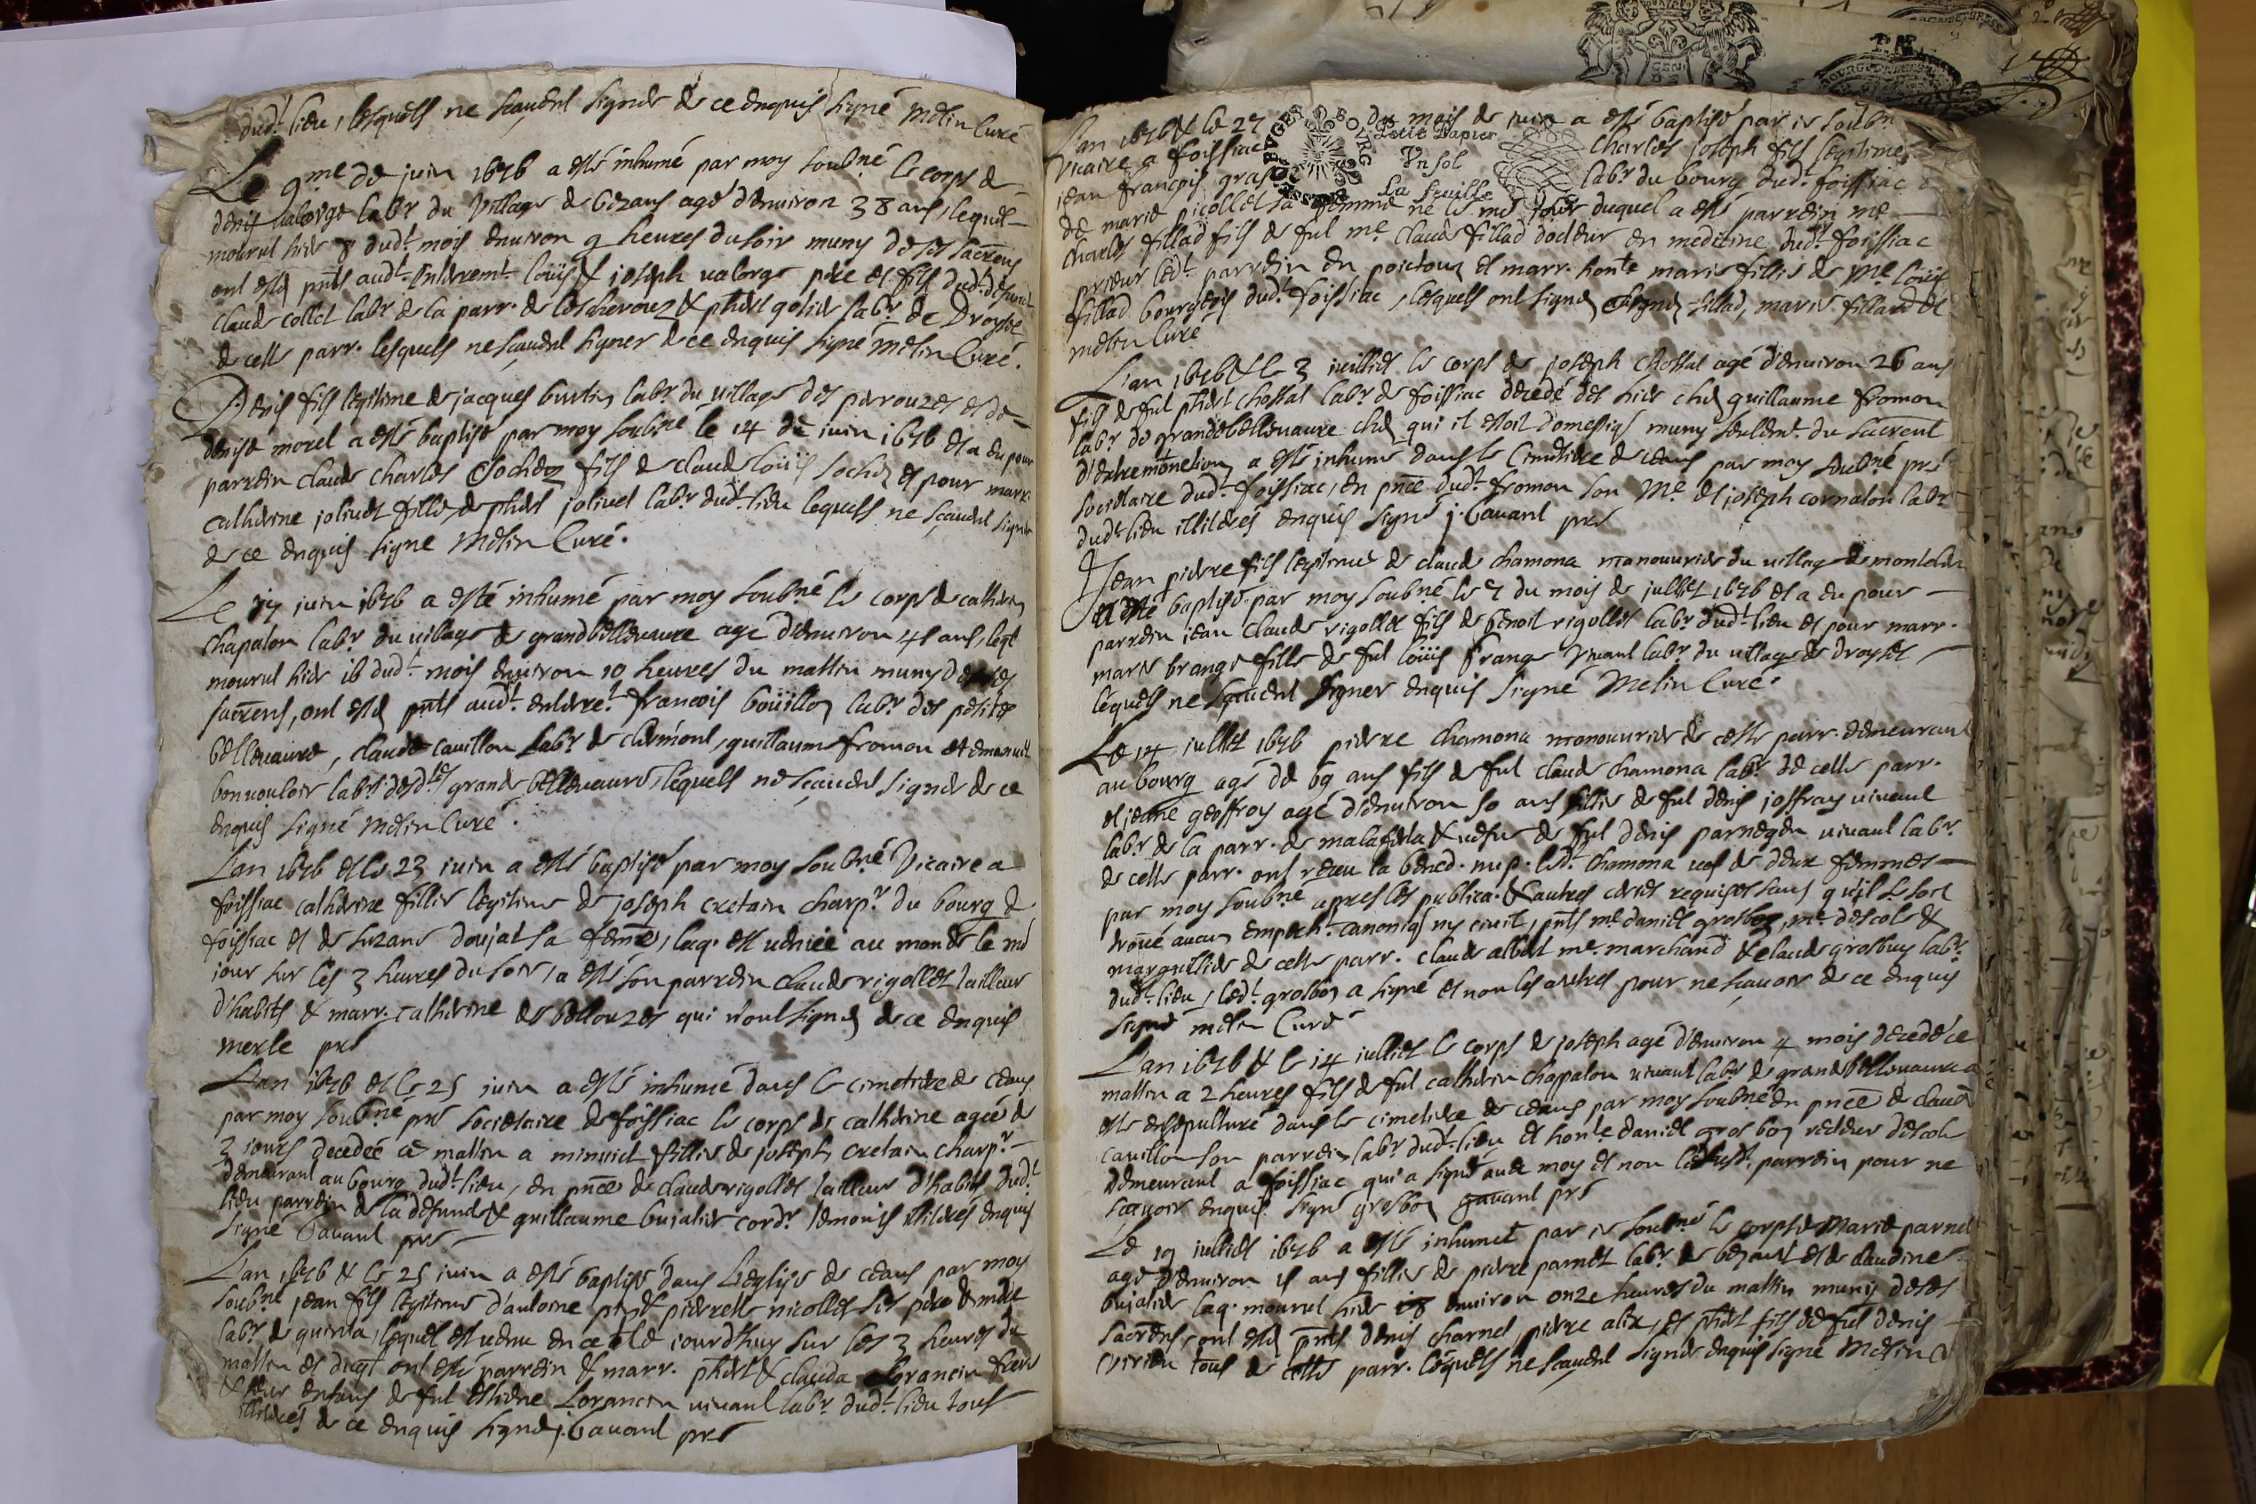 dudt. lieu, lesquels ne scauent signer de ce enquis signé Metin Curé
Le 9me de juin 1676 a esté inhumé par moy soubné le corps de
denis ualorge labr du village de bezans agé d'enuiron 38 ans, lequel
mourut hier 8 dudt. mois enuiron 9 heures du soir muny de ses sacrens
ont estez pnts audt. enterremt. loüis & joseph ualorge pere et fils dudt. defunct
claude collet labr de la parr. de lescherouz & phert golier labr. de Droyset
de cette parr. lesquels ne scauent signer de ce enquis signé Metin Curé.
Denis fils legitime de jacques burtin labr du village des perouzes et de
denise morel a esté baptisé par moy soubné le 14 de juin 1676 et a eu pour
parrein claude charles Sochez fils de claude loüis sochez et pour marr.
catherine joliuet fille de phert joliuet labr dudt. lieu lequels ne scauent signer
de ce enquis signe Metin Curé.
Le 17 juin 1676 a esté inhumé par moy soubné le corps de catherin
chapalon labr du uillage de grand belleuaure agé d'enuiron 45 ans, leql
mourut hier 16 dudt. mois enuiron 10 heures du mattin muny de ses
sacrens, ont estez pnts audt. enterret. francois boüillon labr des petites
belleuaure, claude cauillon labr de clermont, guillaume fromon et emanuel
bonuouloir labrs desdtes grande belleuaure, lequels ne scauent signer de ce
enquis signé Metin Curé.
L'an 1676 et le 23 juin a esté baptisé par moy soubné Vicaire a
foissiac catherine fillie legitime de joseph cretain charpr. du bourg de
foissiac et de suzane doujat sa femme, laq. est uenüe au monde le me
jour sur les 3 heures du soir, a esté son parrein claude rigollet tailleur
d'habits & marr. catherine de bellouzes qui n'ont signez de ce enquis
merle pre
L'an 1676 et le 25 juin a esté inhumé dans le cimetiere de ceans
par moy soubné pre societaire de foissiac le corps de catherine agée de
3 jours decedée ce mattin a minuict fillie de joseph cretain charpr.
demeurant au bourg dudt. lieu, en pnce de claude rigollet tailleur d'habits dudt.
lieu parrein de la defuncte & guillaume bujalier cordr temoins illiterés enquis
signé Bauant pre
L'an 1676 & le 25 juin a esté baptisé dans l'eglise de ceans par moy
soubné jean fils legitime d'antoine & pierrette nicollet ses pere & mere
labr de quinta, lequel est uenu en ce jourd'huy sur les 3 heures du
mattin et duql ont esté parrein & marr. phert & clauda Lorancin frere
& seur enfans de fut estiene Lorancin uiuant labr dudt. lieu tous
illiterés de ce enquis signé j. Bauant pre
L'an 1676 & le 27 du mois de juin a esté baptisé par ie soubné
Vicaire a foissiac Charles joseph fils legitime
BVGEY BOVRG
Petit Papier
Vn sol
La feuille
jean francois gras labr du bourg dudt. foissiac
de marie nicollet sa femme né le me jour duquel a esté parrein me
charles fillad fils de fut me claude fillad docteur en medecine dudt. foissiac
prieur ledt. parrein en poictouz et marr. honte marie fillie de Me loüis
fillad bourgeois dudt. foissiac, lesquels ont signez fillad, marie fillard et
metin Curé
L'an 1676 & le 3 juillet le corps de joseph chossat agé d'enuiron 26 ans
fils de fut phert chossat labr de foissiac decedé des hier chez guillaume fromon
labr de grande belleuaure chez qui il estoit domestiq muny seulemt. du sacrent
d'extremonction a esté inhumé dans le cimetiere de ceans par moy soubné pre
societaire dudt. foissiac, en pnce dudt. fromon son Me et joseph cornaton labr
dudt. lieu illiterés enquis signé j. Bauant pre
Jean pierre fils legitime de claude chamona manouurier du uillage de
a esté baptisé par moy soubné le 7 du mois de jullet 1676 et a eu pour
parrein jean claude rigollet fils de benoit rigollet labr dudt. lieu et pour marr.
marie brange fille de fut loüis brange viuant labr du uillage de droyset
lequels ne scauent signer enquis signé Metin Curé.
Le 14 jullet 1676 pierre chamona manouurier de cette parr. demeurant
au bourg agé de 69 ans fils de fut claude chamona labr de cette parr.
et jeane geoffroy agé d'enuiron 50 ans fillie de fut denis joffray uiuant
labr de la parr. de malafreta & uefue de fut denis parneget uiuant labr
de cette parr. ont receu la bened. nup. ledt. chamona uef de deux femmes
par moy soubné apres les publica. & autres cerés requises sans qu'il se soit
trouué aucun empech. canoniq ny ciuil, pnts me daniel grosboz, me d'escole &
marguillier de cette parr. claude albert me marchand & claude grosbuy labr
dudt. lieu, ledt. grosboz a signé et non les autres pour ne scauoir de ce enquis
signé metin Curé
L'an 1676 & le 14 jullet le corps de joseph agé d'enuiron 4 mois decedé ce
mattin a 2 heures fils de fut catherin chapalon uiuant labr de grande belleuaure a
esté ensepulturé dans le cimetiere de ceans par moy soubné en pnce de claude
cauillon son parrein labr dudt. lieu et honte daniel grosboz recteur d'escole
demeurant a foissiac qui a signé auec moy et non ledt. parrein pour ne
scauoir enquis signé grosboz Bauant pre
Le 19 jullet 1676 a esté inhumet par ie soubné le corps de Marie parnet
agé d'enuiron 15 ans fillie de pierre parnet labr de bezans et de claudine
bujalier laq. mourut hier 18 enuiron onze heures du mattin muny de ses
sacrens, ont estez pnts denis charnel, pierre alix, et phert fils de fut denis
uirieu tous de cette parr. lequels ne scauent signer enquis signé Metin C